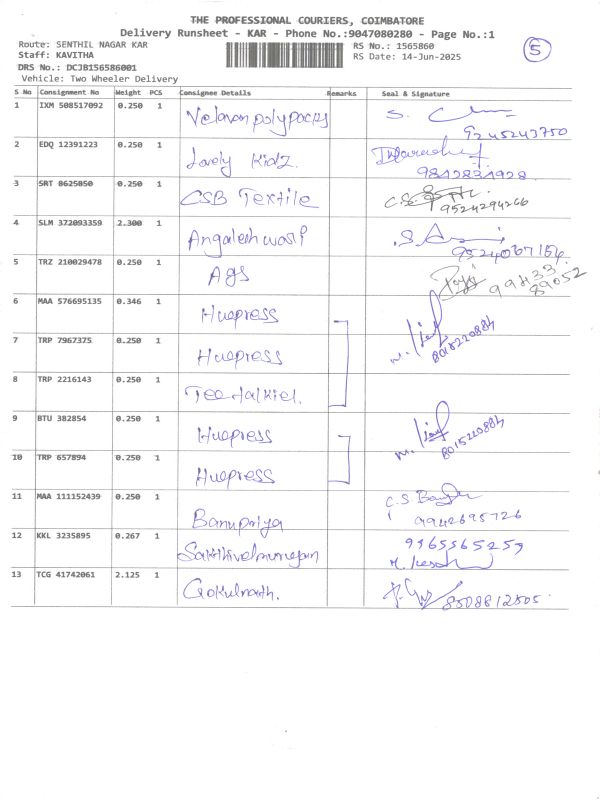 THE PROFESSIONAL COURIERS, COIMBATORE
Delivery Runsheet - KAR - Phone No.:9047080280 - Page No.:1
Route: SENTHIL NAGAR KAR RS No.: 1565860 5
Staff: KAVITHA RS Date: 14-Jun-2025
DRS No.: DCJB156586001
Vehicle: Two Wheeler Delivery
S No Consignment No Weight PCS Consignee Details Remarks Seal & Signature
1 IXM 508517092 0.250 1 Velavan polypacks
9245243750
2 EDQ 12391223 0.250 1 Lovely Kidz
9842831928
3 SRT 8625050 0.250 1 CSB Textile
9524294266
4 SLM 372093359 2.300 1 Angaleshwari
9524067164
5 TRZ 210029478 0.250 1 Ags 99433
89052
6 MAA 576695135 0.346 1 Huepress
7 TRP 7967375 0.250 1 Huepress 8015220884
8 TRP 2216143 0.250 1
9 BTU 382854 0.250 1 Huepress
10 TRP 657894 0.250 1 Huepress 8015220884
11 MAA 111152439 0.250 1 Banupriya
9942695726
12 KKL 3235895 0.267 1 Sakthivelmurugan 9965565259
13 TCG 41742061 2.125 1 Gokulnath. 8508812505